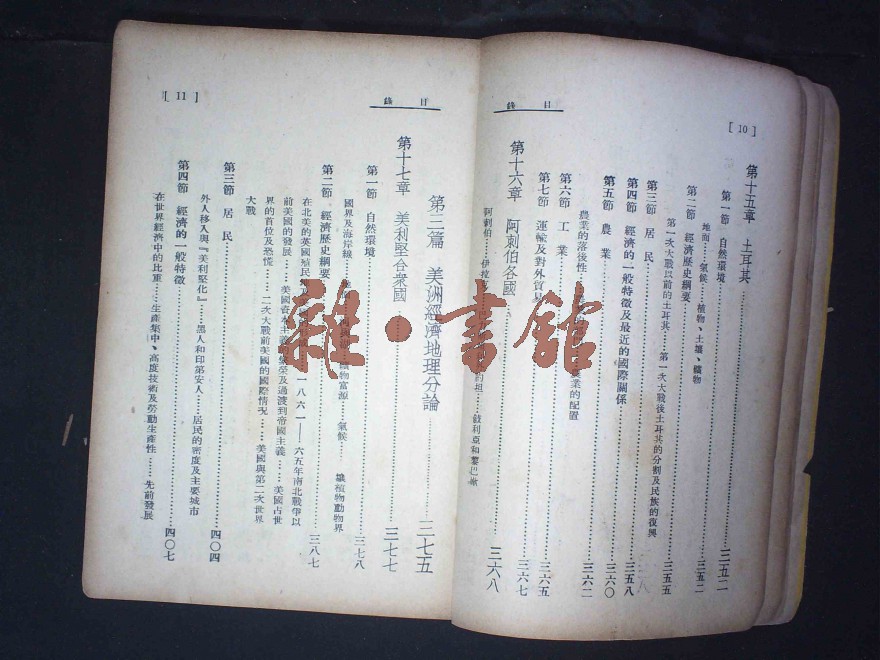 [ 10 ]
目錄
第十五章 土耳其……三五二
第一節 自然環境……三五二
地面……氣候……植物、土壤、礦物
第二節 經濟歷史綱要……三五五
第一次大戰以前的土耳其……第一次大戰後土耳其的分割及民族的復興
第三節 居民
第四節 經濟的一般特徵及最近的國際關係……三五八
第五節 農業……三六〇
農業的落後性 農業的配置
第六節 工業……三六二
第七節 運輸及對外貿易……三六五
第十六章 阿剌伯各國……三六七
阿剌伯……伊拉 約坦……敍利亞和黎巴嫩……三六八
[ 11 ]
目錄
第三篇 美洲經濟地理分論……三七五
第十七章 美利堅合衆國……三七七
第一節 自然環境……三七八
國界及海岸線 礦物富源……氣候……植物動物界
第二節 經濟歷史綱要……三八七
在北美的英國殖民 一八六一——六五年南北戰爭以
前美國的發展……美國資本主義的繁榮及過渡到帝國主義……美國占世
界的首位及恐慌……二次大戰前美國的國際情况……美國與第二次世界
大戰
第三節 居民……四〇四
外人移入與『美利堅化』……黑人和印第安人……居民的密度及主要城市
第四節 經濟的一般特徵……四〇七
在世界經濟中的比重……生產集中、高度技術及勞動生產性……先前發展
雜·書館